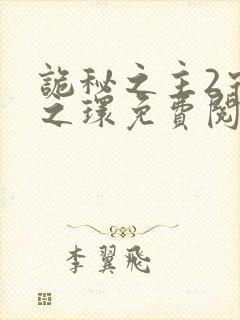 詭秘之主2
之環免費閱
李翼飛